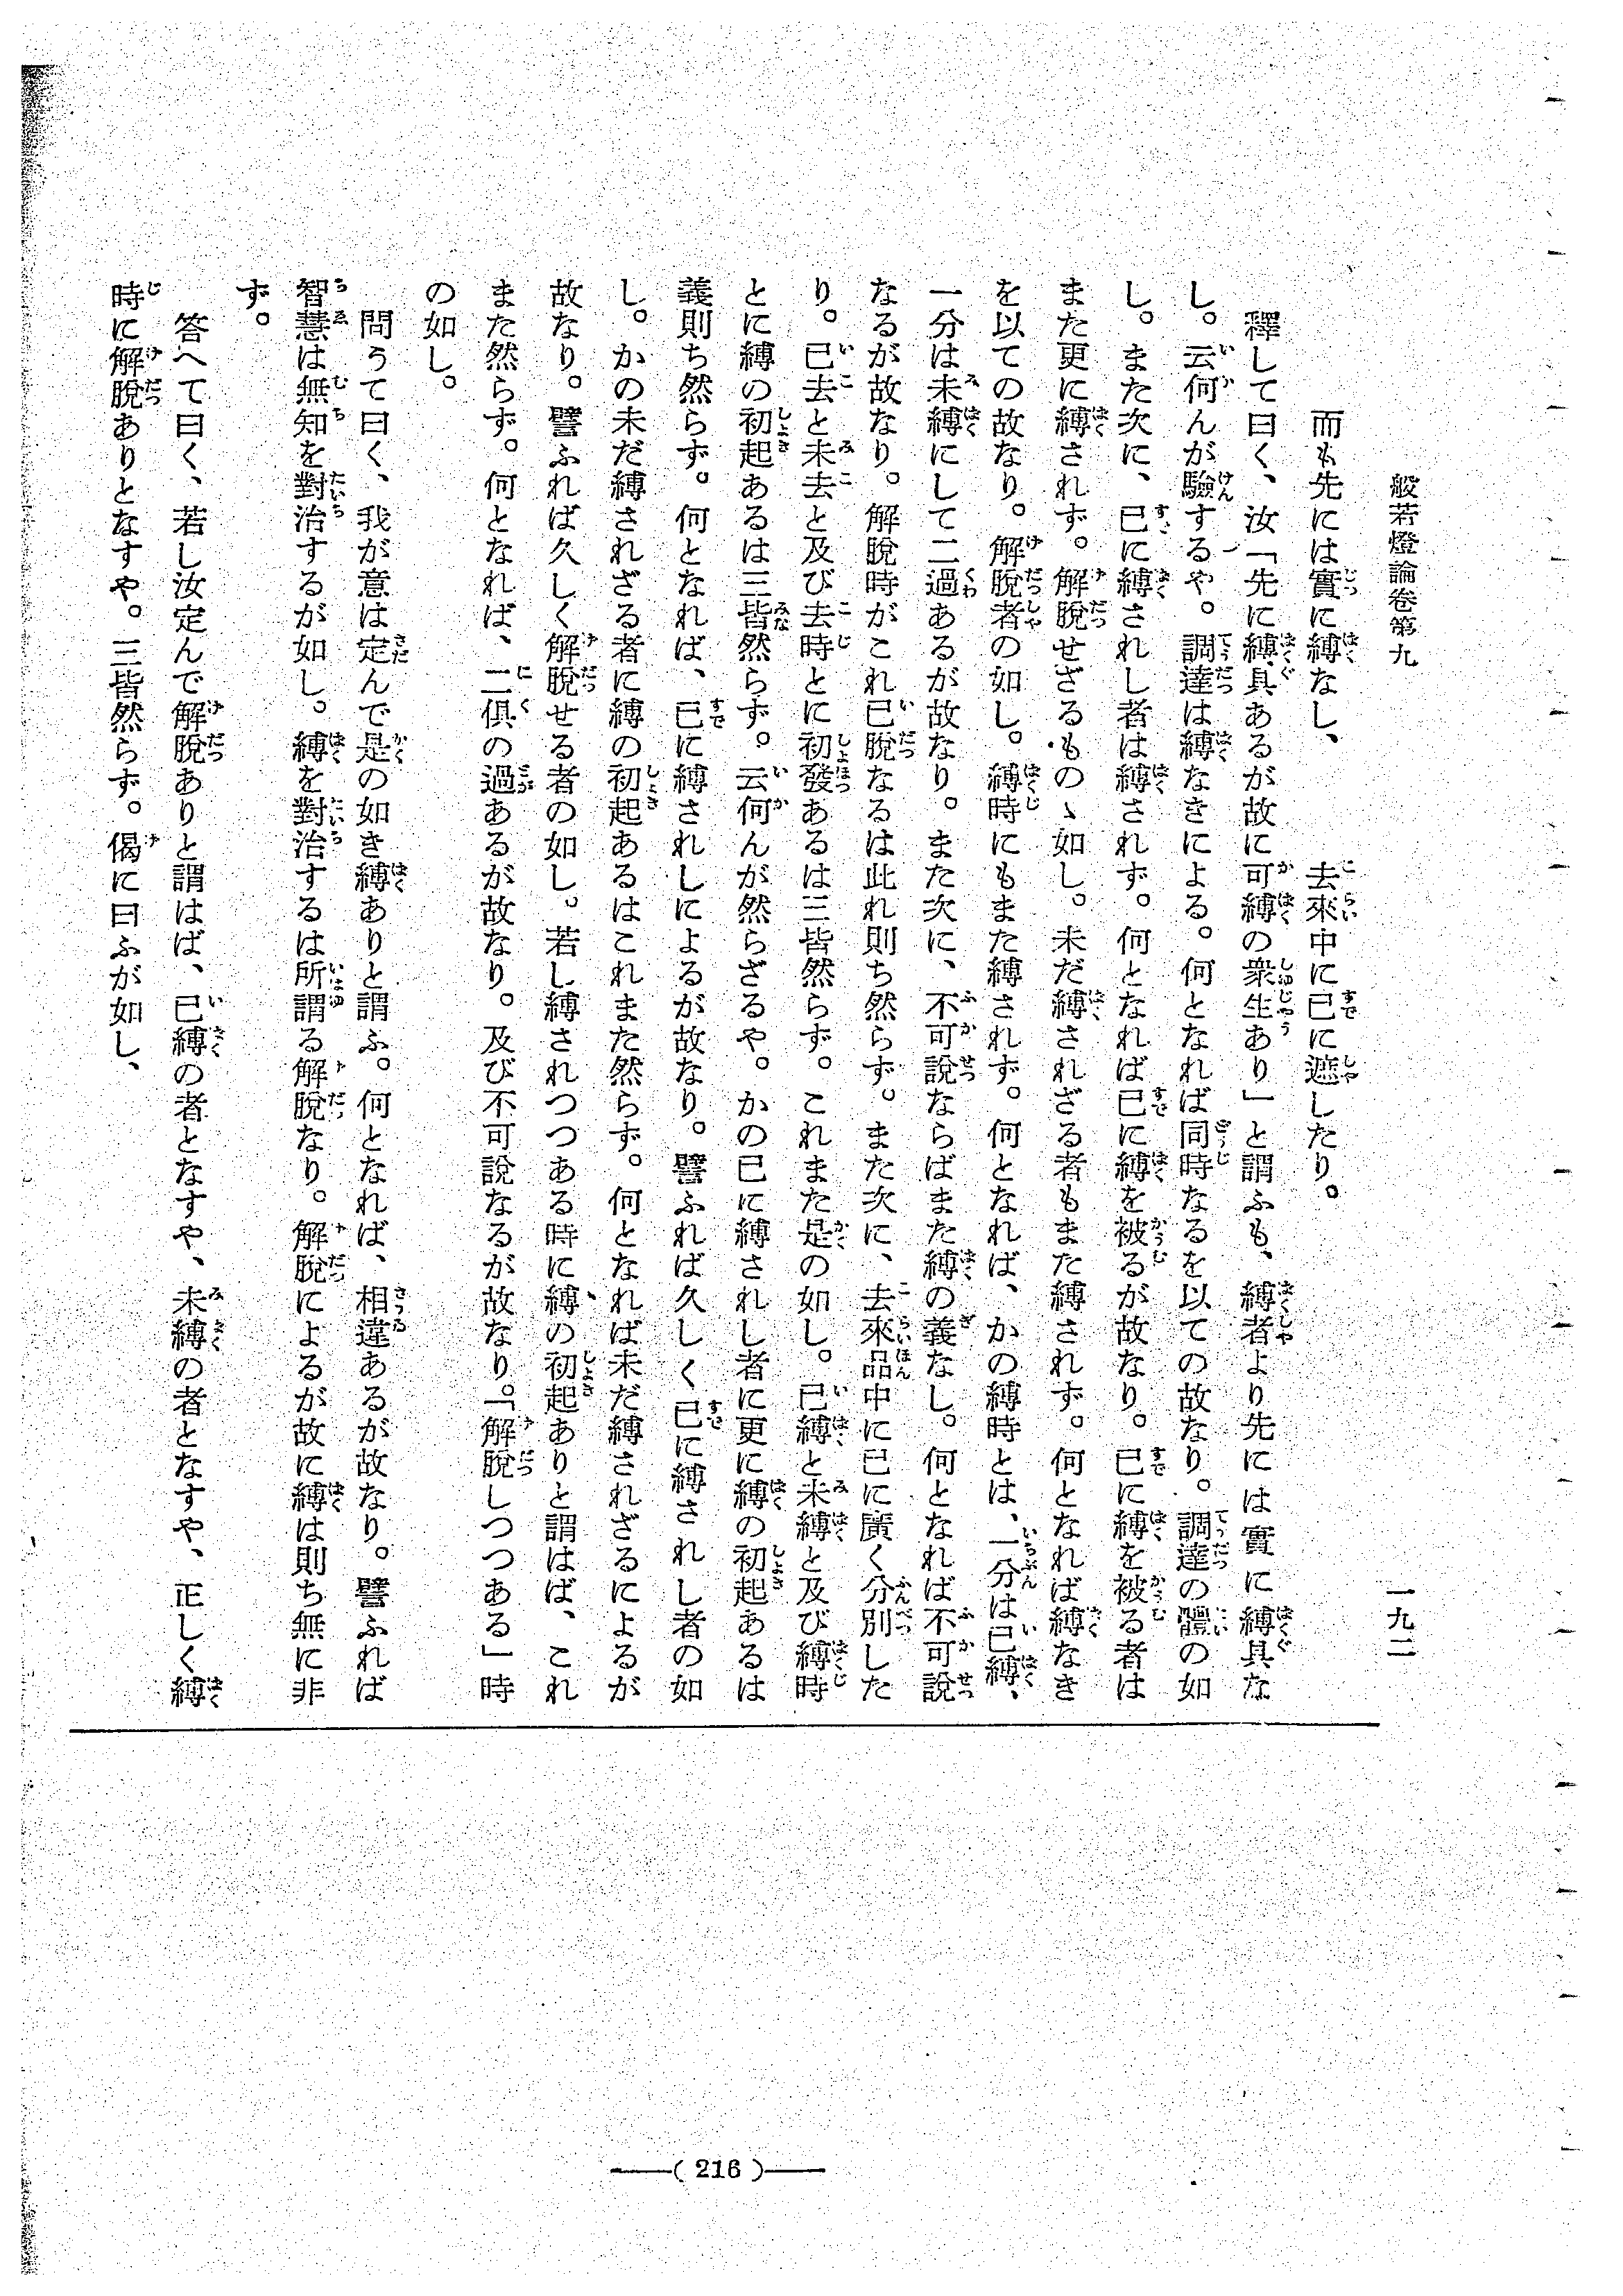 般若燈論卷第九
一九二
而も先には實に縛なし、　去來中に已に遮したり。
釋して曰く、汝「先に縛具あるが故に可縛の衆生あり」と謂ふも、縛者より先には實に縛具な
し。云何んが驗するや。調達は縛なきによる。何となれば同時なるを以ての故なり。調達の體の如
し。また次に、已に縛されし者は縛されず。何となれば已に縛を被るが故なり。已に縛を被る者は
また更に縛されず。解脫せざるものゝ如し。未だ縛されざる者もまた縛されず。何となれば縛なき
を以ての故なり。解脫者の如し。縛時にもまた縛されず。何となれば、かの縛時とは、一分は已縛、
一分は未縛にして二過あるが故なり。また次に、不可說ならばまた縛の義なし。何となれば不可說
なるが故なり。解脫時がこれ已脫なるは此れ則ち然らず。また次に、去來品中に已に廣く分別した
り。已去と未去と及び去時とに初發あるは三皆然らず。これまた是の如し。已縛と未縛と及び縛時
とに縛の初起あるは三皆然らず。云何んが然らざるや。かの已に縛されし者に更に縛の初起あるは
義則ち然らず。何となれば、已に縛されしによるが故なり。譬ふれば久しく已に縛されし者の如
し。かの未だ縛されざる者に縛の初起あるはこれまた然らず。何となれば未だ縛されざるによるが
故なり。譬ふれば久しく解脫せる者の如し。若し縛されつつある時に縛の初起ありと謂はば、これ
また然らず。何となれば、二俱の過あるが故なり。及び不可說なるが故なり。「解脫しつつある」時
の如し。
問うて曰く、我が意は定んで是の如き縛ありと謂ふ。何となれば、相違あるが故なり。譬ふれば
智慧は無知を對治するが如し。縛を對治するは所謂る解脫なり。解脫によるが故に縛は則ち無に非
ず。
答へて曰く、若し汝定んで解脫ありと謂はば、已縛の者となすや、未縛の者となすや、正しく縛
時に解脫ありとなすや。三皆然らず。偈に曰ふが如し、
(216)